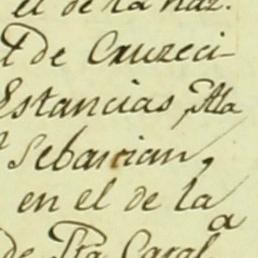 el de la Naz.
l de Cruzeci
Estancias, Sta
Sebastian,
en el de la
a
de Sta Catal